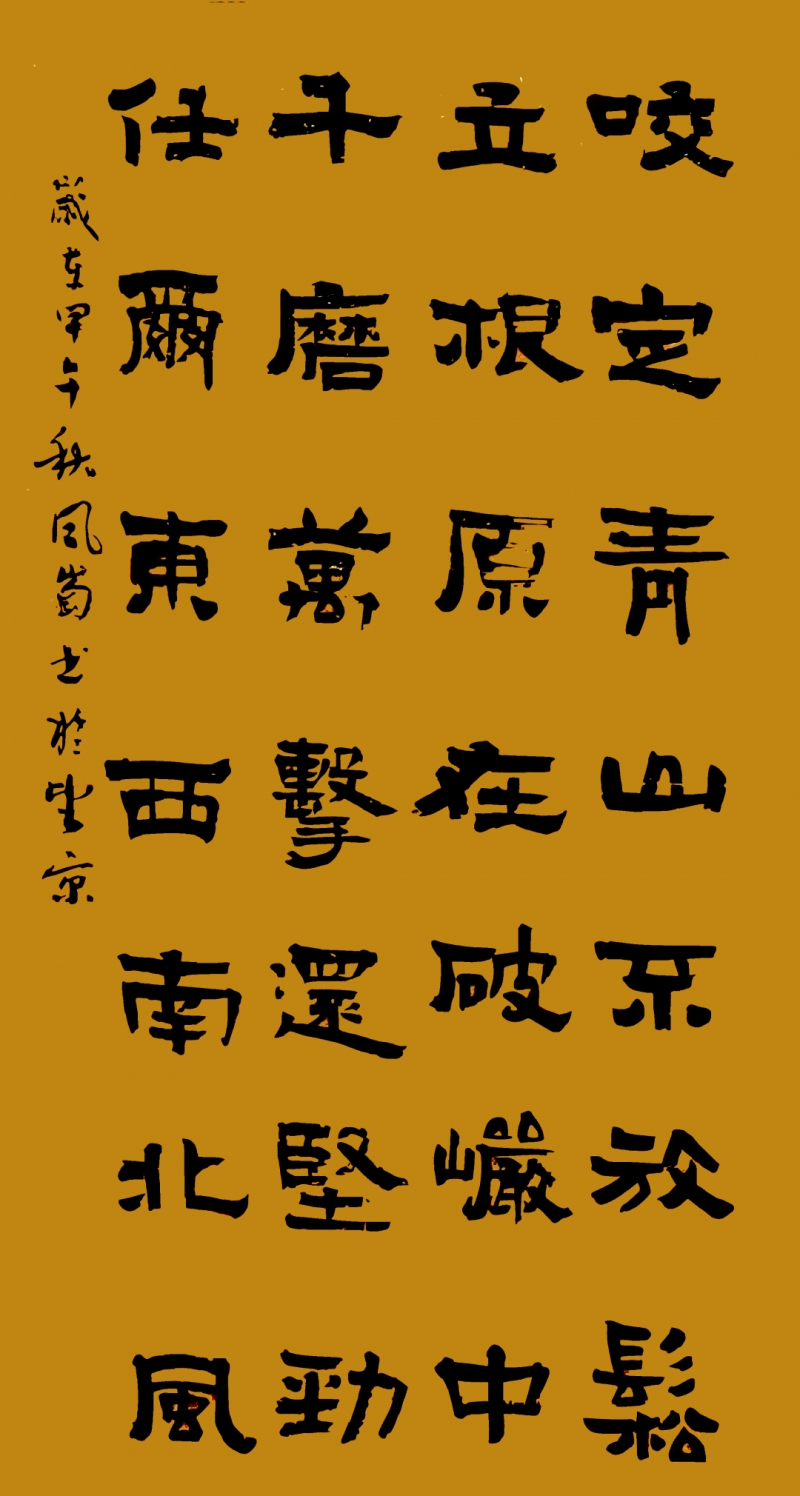 咬定青山不放鬆
立根原在破巗中
千磨萬擊還堅勁
任爾東西南北風
歲在甲午秋風嵩书於北京